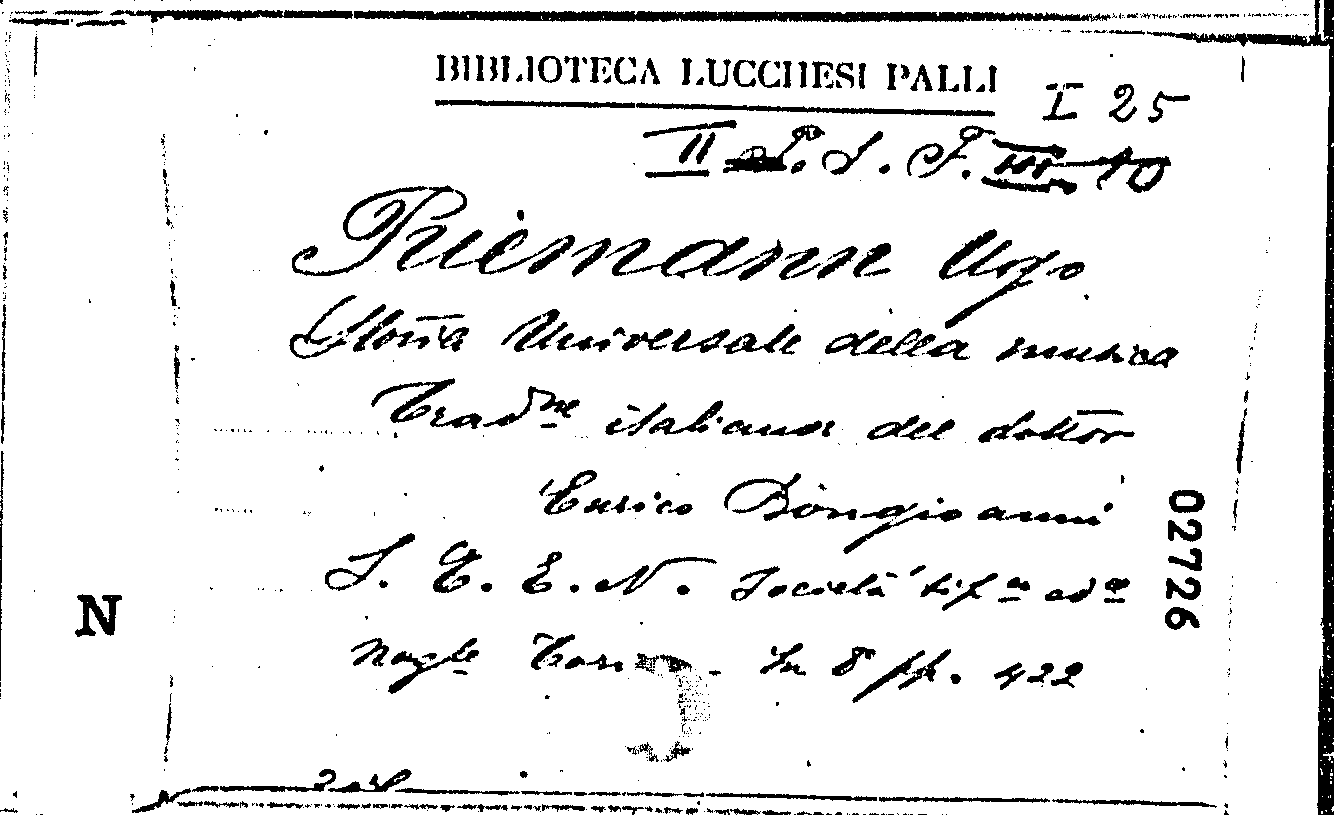 BIBLIOTECA LUCCHESI PALLI
I 25
II P. S. F. III 10
Riemann Ugo
Storia Universale della musica
Tradne italiana del dottor
Enrico Bongioanni
S. T. E. N. Società tipca edce
Nazle Torino - In 8° pp. 422
02726
N